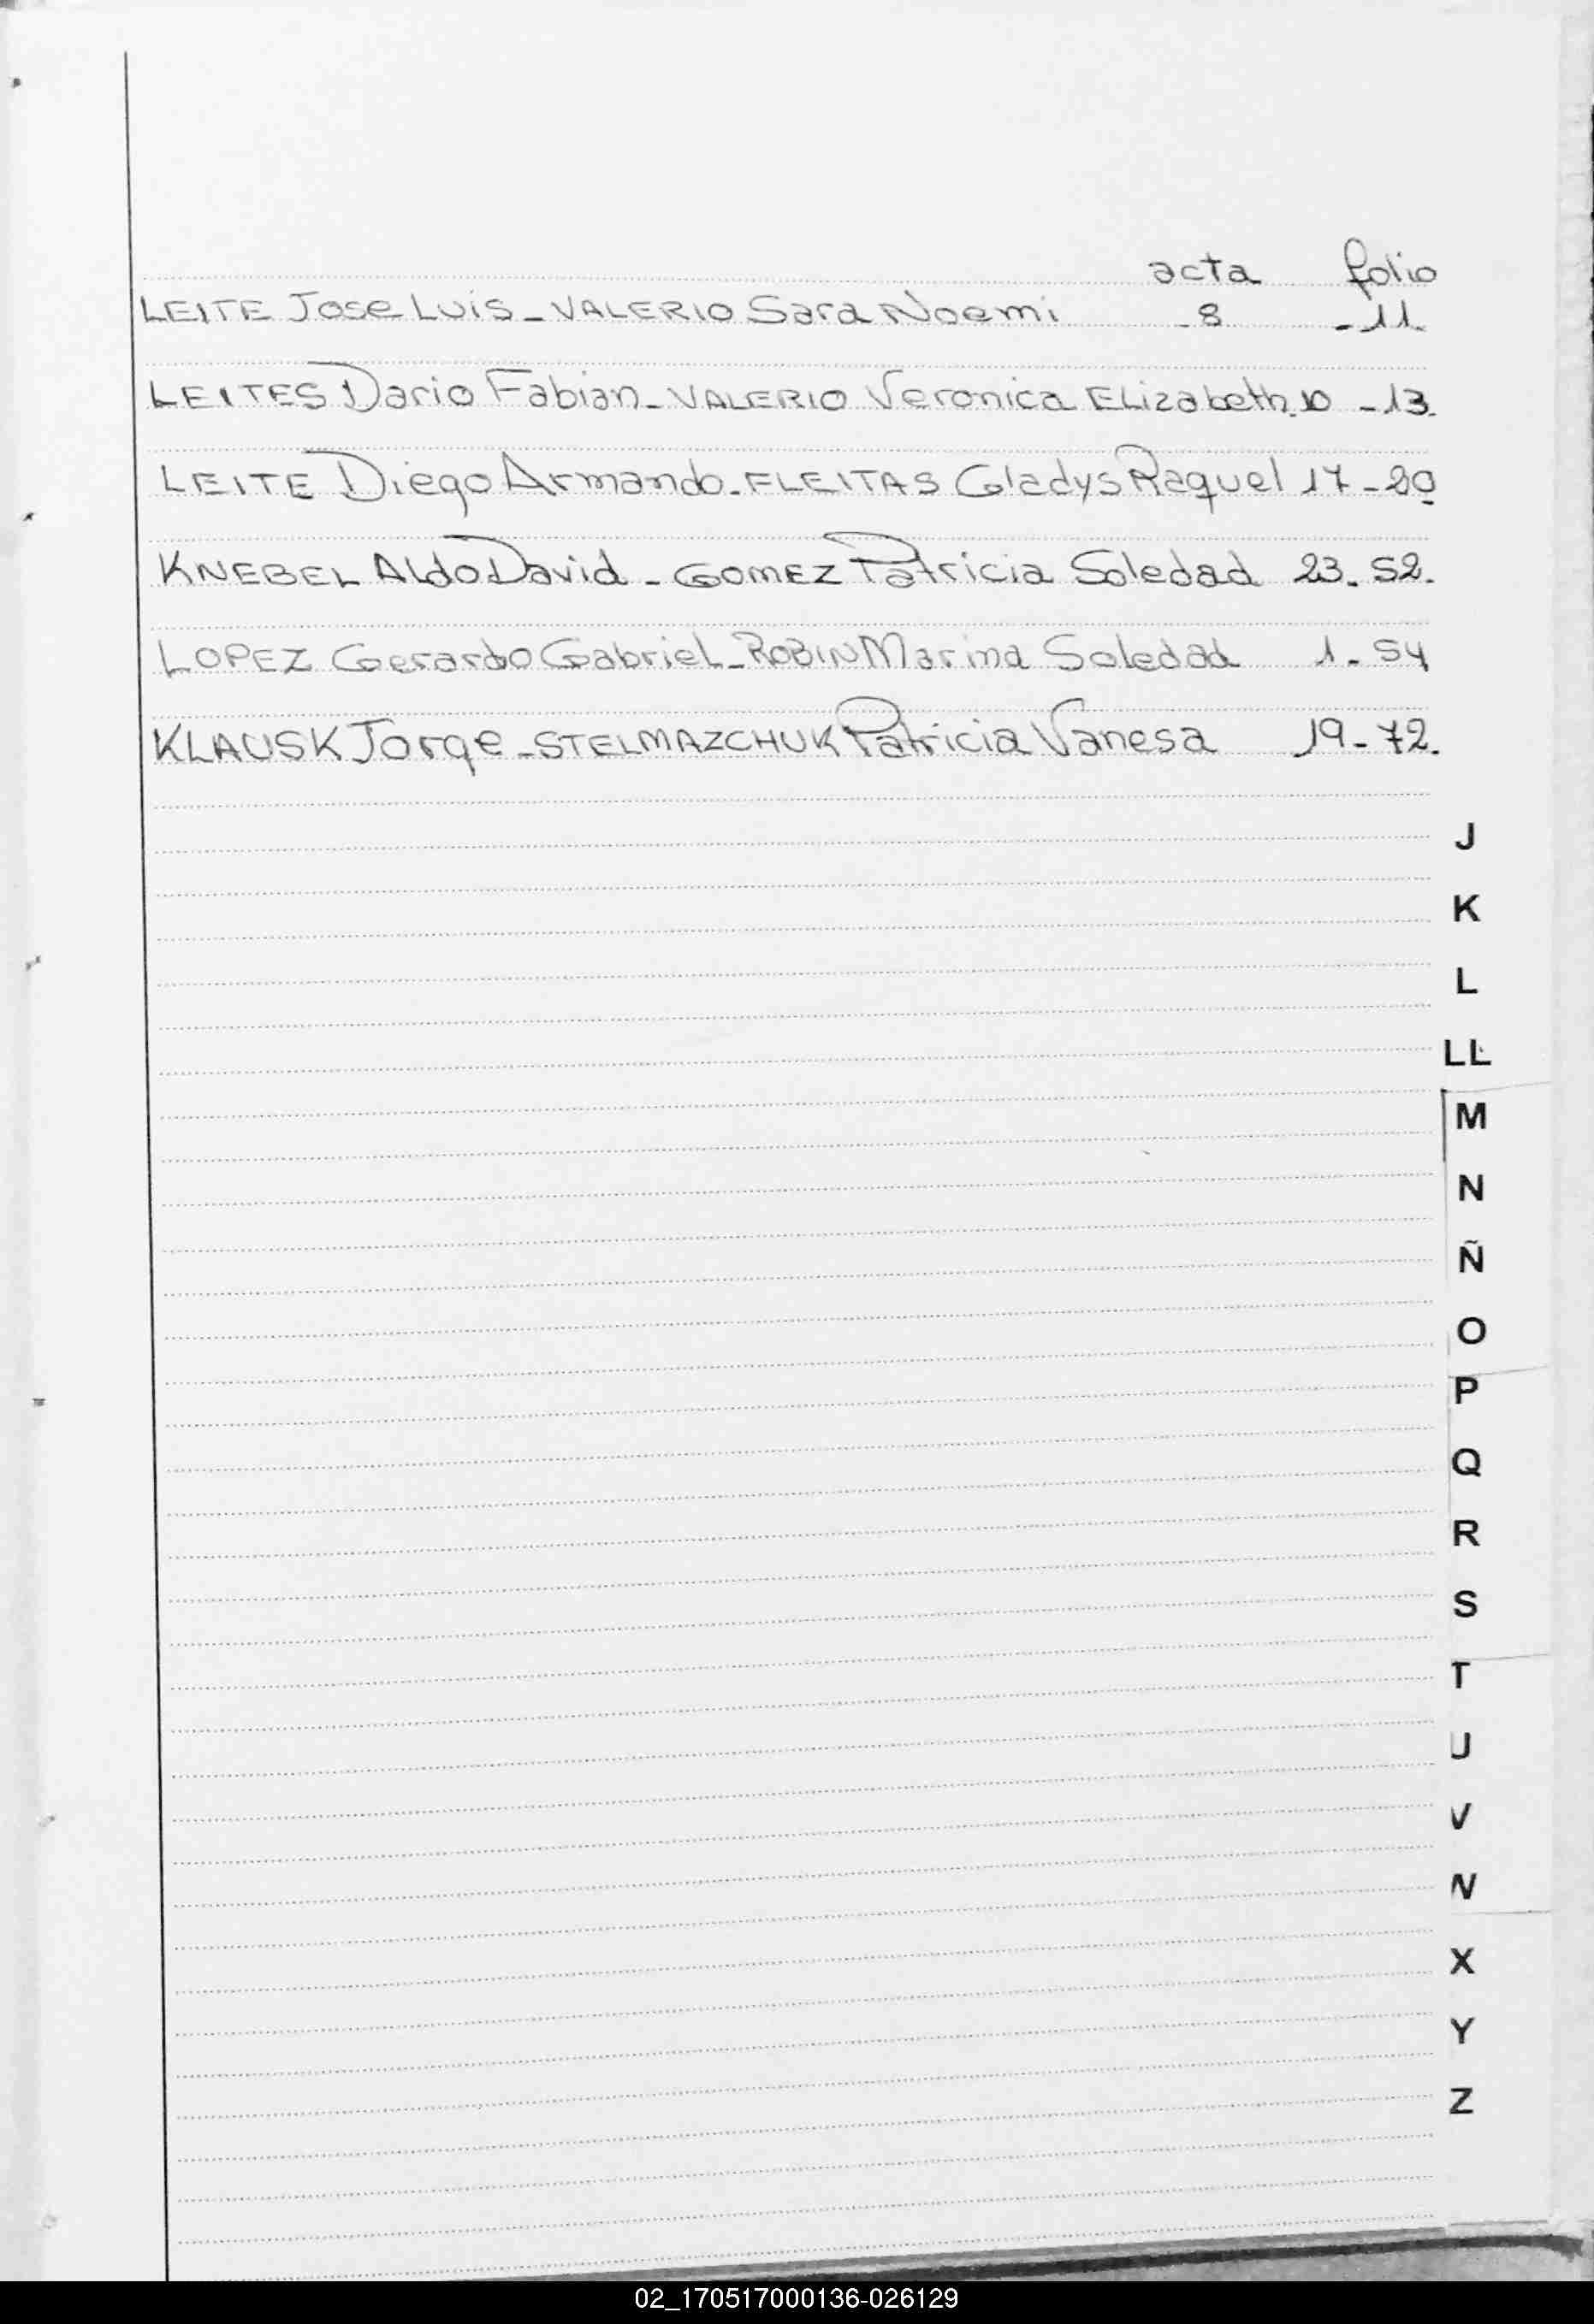 acta folio
LEITE Jose Luis - VALERIO Sara Noemi - 8 - 11
LEITES Dario Fabian - VALERIO Veronica Elizabeth. 10 - 13.
LEITE Diego Armando. FLEITAS Gladys Raquel 17 - 20
KNEBEL Aldo David - GOMEZ Patricia Soledad 23. 52.
LOPEZ Gerardo Gabriel - ROBIN Marina Soledad 1. 54
KLAUSK Jorge - STELMAZCHUK Patricia Vanesa 19 - 72.
J
K
L
LL
M
N
Ñ
O
P
Q
R
S
T
U
V
W
X
Y
Z
02_170517000136-026129